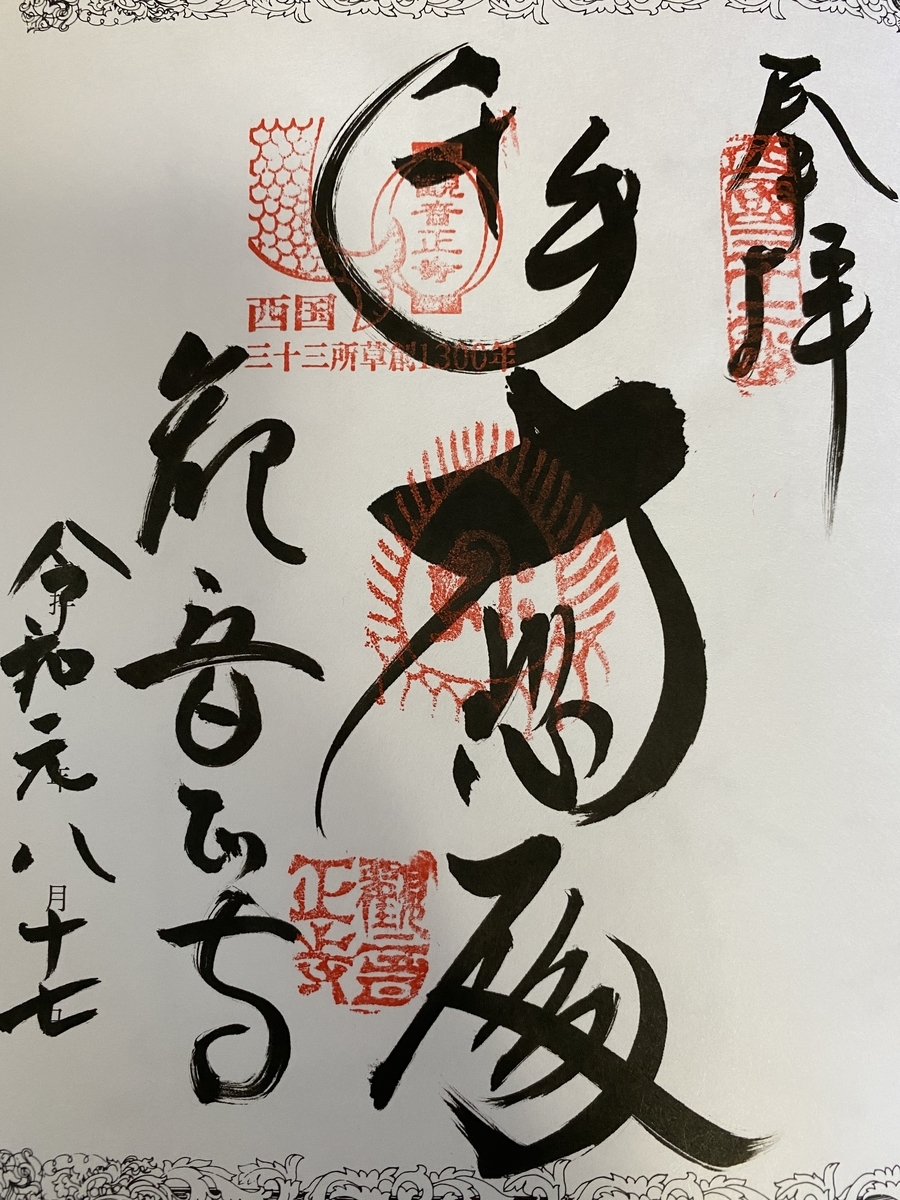 奉拝
西國三十二番
千手
大悲殿
觀音正寺
西国
三十三所草創1300年
觀音正寺
観音正寺
令和元年八月十七日